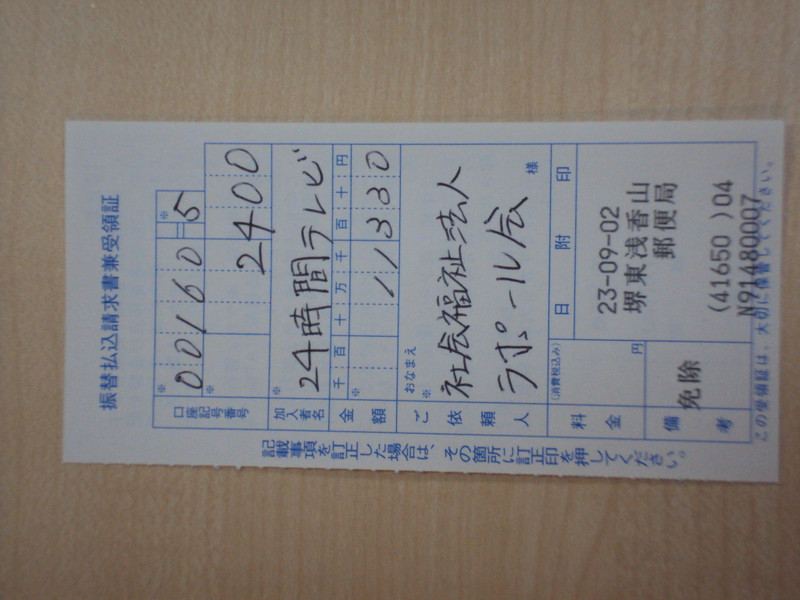 振替払込請求書兼受領証
口座記号番号 ※ 00160 = ※ 5
※ 2400
加入者名 ※ 24時間テレビ
金額 千百十万千百十円
※ 11330
ご依頼人 おなまえ
※ 社会福祉法人
ラポール会 様
料金 (消費税込み) 円
日附印
23-09-02
堺東浅香山
郵便局
(41650 )04
N91480007
備考 免除
この受領証は、大切に保管してください。
記載事項を訂正した場合は、その箇所に訂正印を押してください。